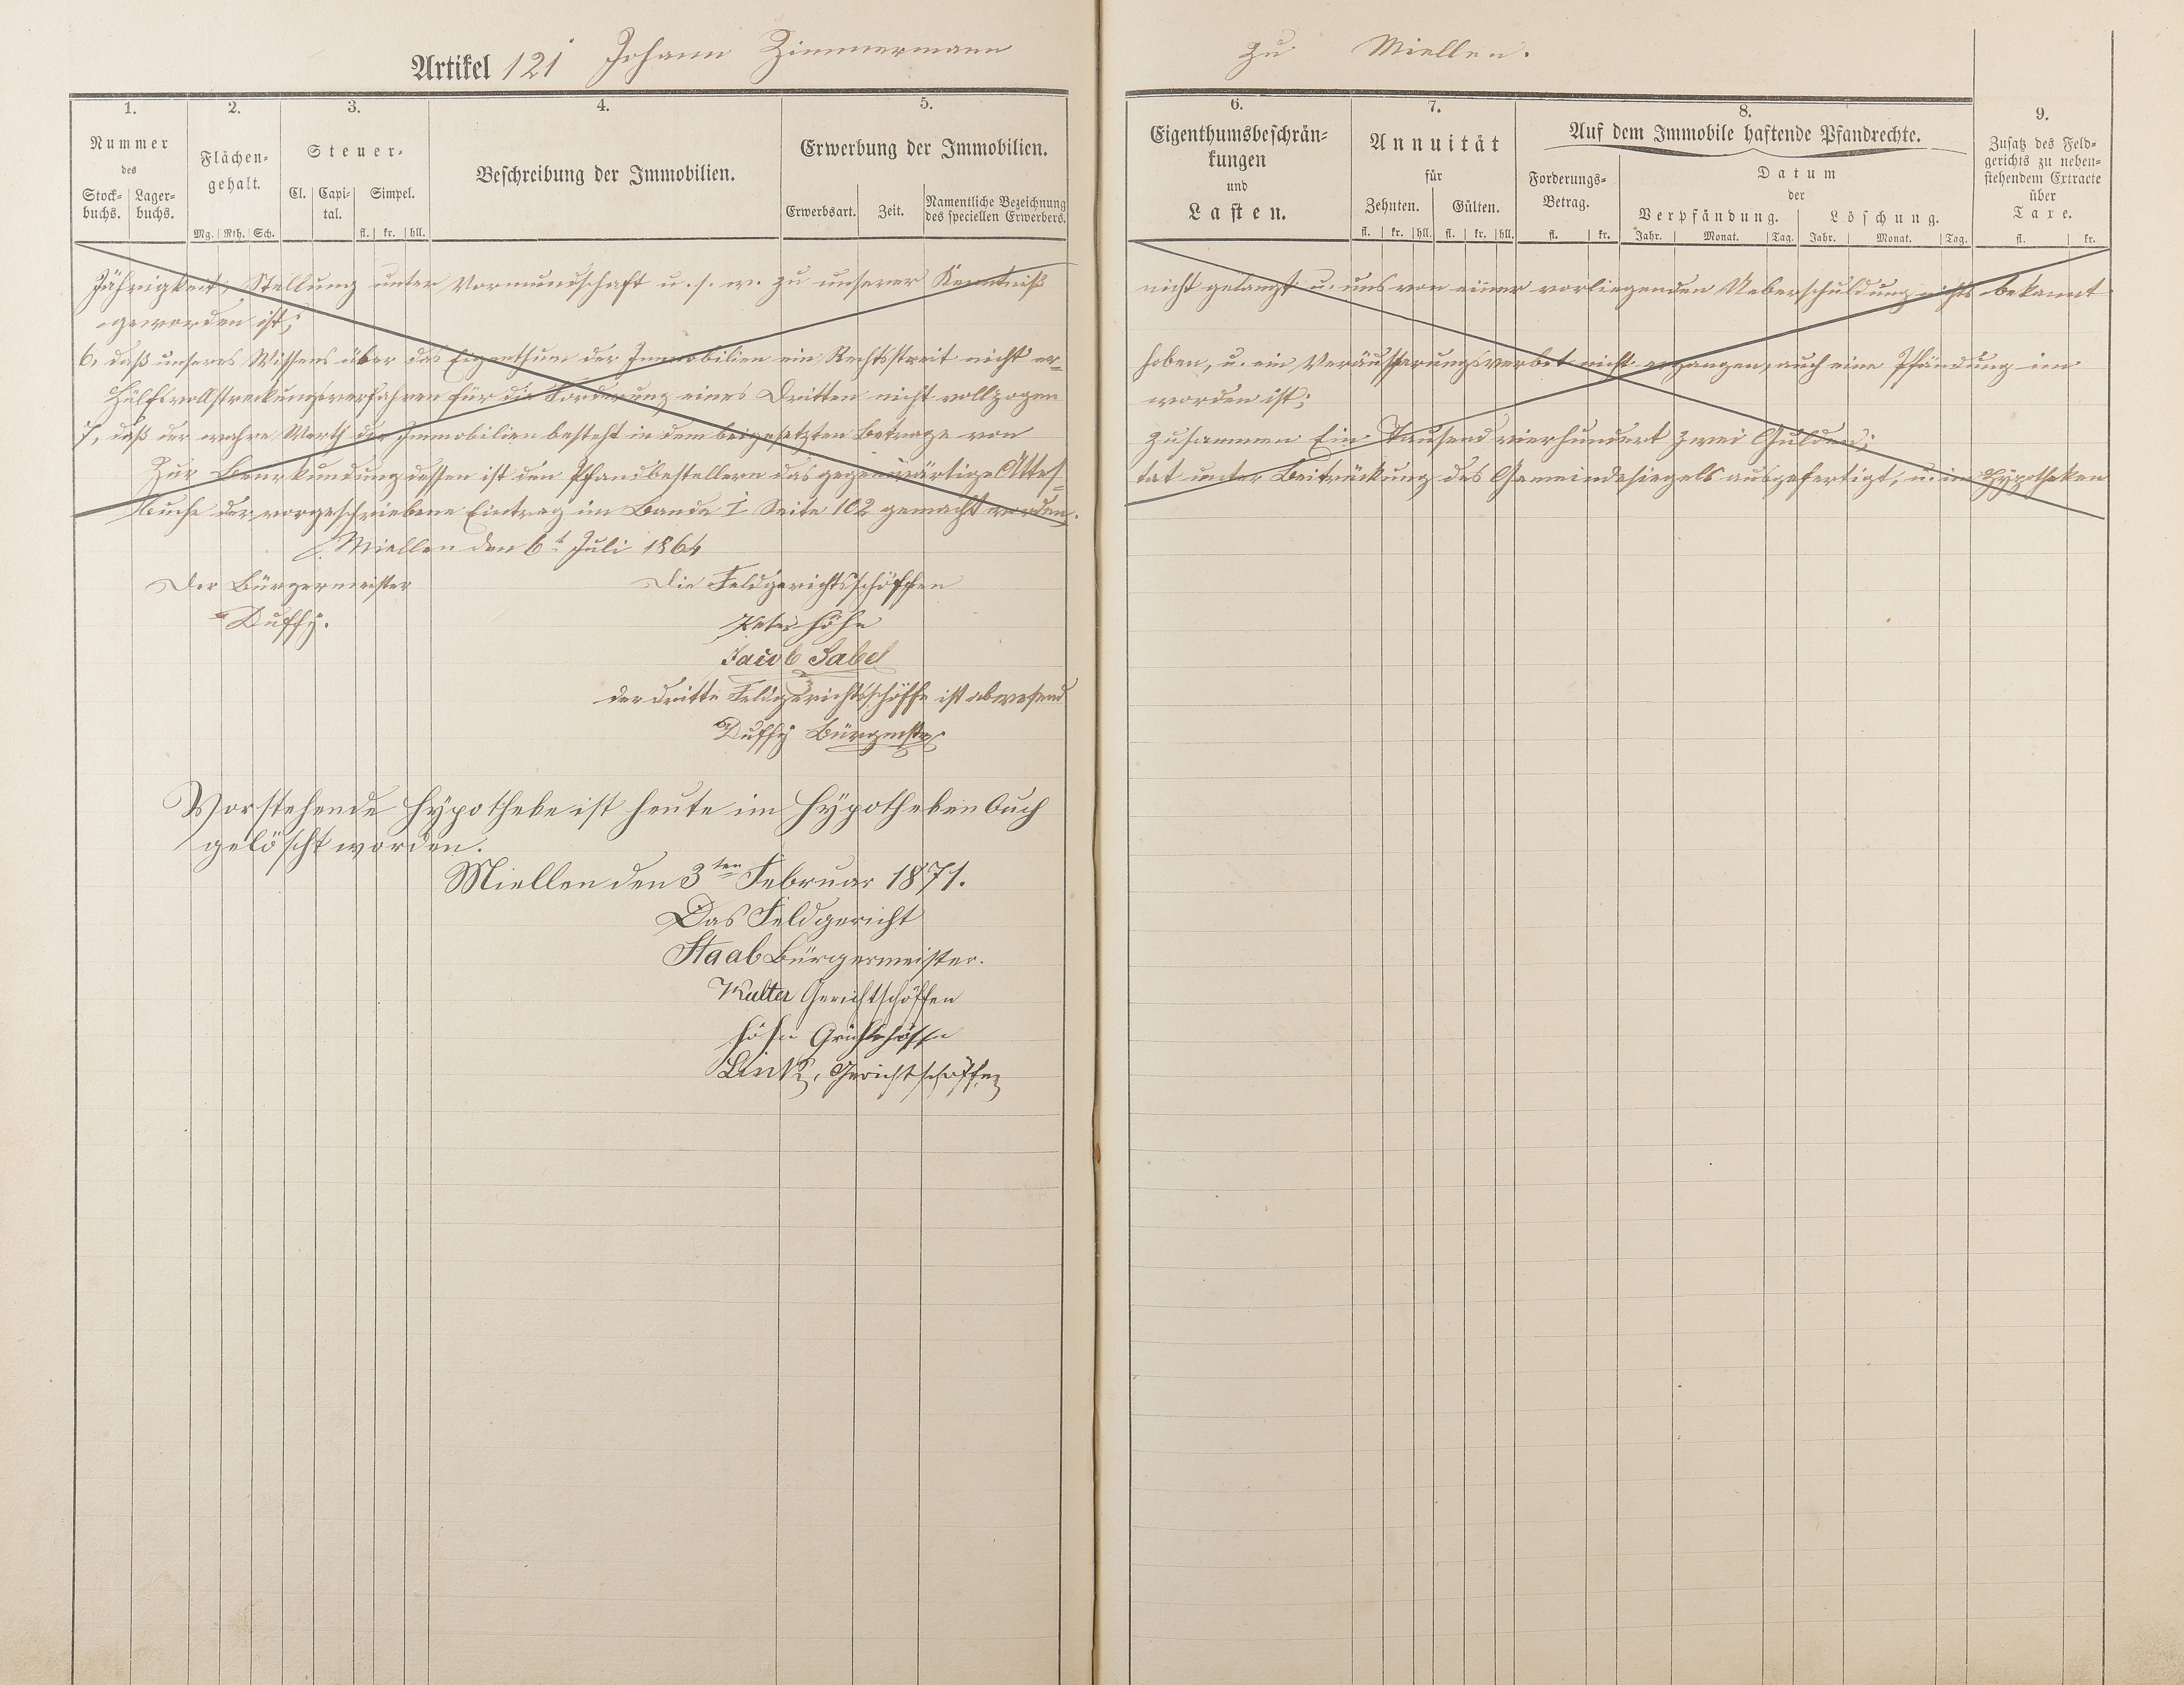 Artikel 121 Johann Zimmermann zu Miellen.
1.
Nummer
des
Stock= Lager=
buchs. buchs.
2.
Flächen=
gehalt.
Mg. Rth. Sch.
3.
Steuer=
Cl. Capi= Simpel.
tal.
fl. kr. hll.
4.
Beschreibung der Immobilien.
5.
Erwerbung der Immobilien.
Erwerbsart. Zeit. Namentliche Bezeichnung
des speciellen Erwerbers.
6.
Eigenthumsbeschrän=
kungen
und
Lasten.
7.
Annuität
für
Zehnten. Gülten.
fl. kr. hll. fl. kr. hll.
8.
Auf dem Immobile haftende Pfandrechte.
Forderungs=
Betrag.
fl. kr.
Datum
der
Verpfändung. Löschung.
Jahr. Monat. Tag. Jahr. Monat. Tag.
9.
Zusatz des Feld=
gerichts zu neben=
stehendem Extracte
über
Taxe.
fl. kr.
Jährigkeit, Stellung unter Vormundschaft u. s. w. zu unserer Kenntniß nicht gelangt u. uns von einer vorliegenden Ueberschuldung nichts bekannt
geworden ist;
6, daß unseres Wissens über das Eigenthum der Immobilien ein Rechtsstreit nicht er= hoben, u. ein Veräusserungsverbot nicht ergangen, auch eine Pfändung im
Hülfsvollstreckungsverfahren für die Forderung eines Dritten nicht vollzogen worden ist;
7, daß der wahre Werth der Immobilien besteht in dem beigesetzten Betrage von zusammen Ein Tausend vierhundert zwei Gulden;
Zur Beurkundung dessen ist den Pfandbestellern das gegenwärtige Attes= tat unter Beitrückung des Gemeindesiegels ausgefertigt, u. im Hypotheken
Buche der vorgeschriebene Eintrag im Bande I Seite 102 gemacht worden.
Miellen den 6t Juli 1864
Der Bürgermeister Die Feldgerichtsschöffen
Duffy. Peter Höhn
Jacob Sabel
der dritte Feldgerichtsschöffe ist abwesend
Duffy Bürgmstr
Vorstehende Hypotheke ist heute im Hypotheken Buch
gelöscht worden.
Miellen den 3ten Februar 1871.
Das Feldgericht
Staab Bürgermeister.
Gerichtschöffen
Höhn
Link, Gerichtschöffen